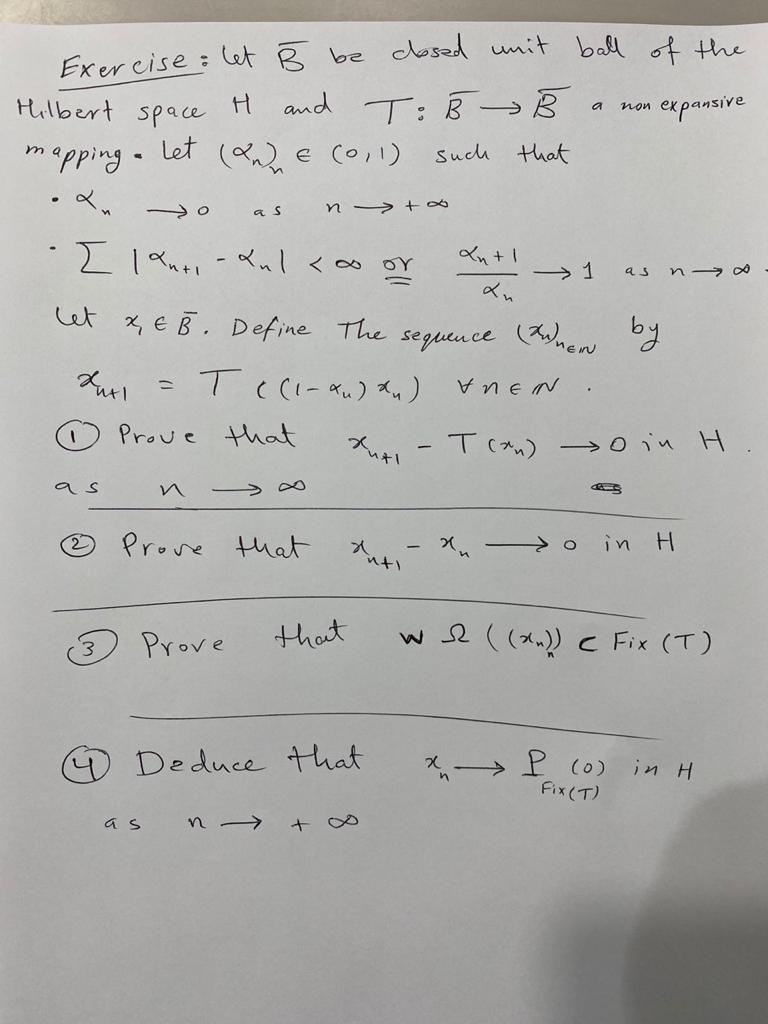 Exercise: let B̄ be closed unit ball of the
Hilbert space H and T: B̄ → B̄ a non expansive
mapping. Let (αₙ)ₙ ∈ (0,1) such that
• αₙ → 0 as n → +∞
• Σ |αₙ₊₁ - αₙ| < ∞ or αₙ₊₁/αₙ → 1 as n → ∞.
Let x₁ ∈ B̄. Define The sequence (xₙ)ₙ∈ℕ by
xₙ₊₁ = T ((1-αₙ) xₙ) ∀ n ∈ ℕ.
① Prove that xₙ₊₁ - T(xₙ) → 0 in H.
as n → ∞
② Prove that xₙ₊₁ - xₙ → 0 in H
③ Prove that w Ω ((xₙ)ₙ) ⊂ Fix(T)
④ Deduce that xₙ → P_Fix(T) (0) in H
as n → +∞